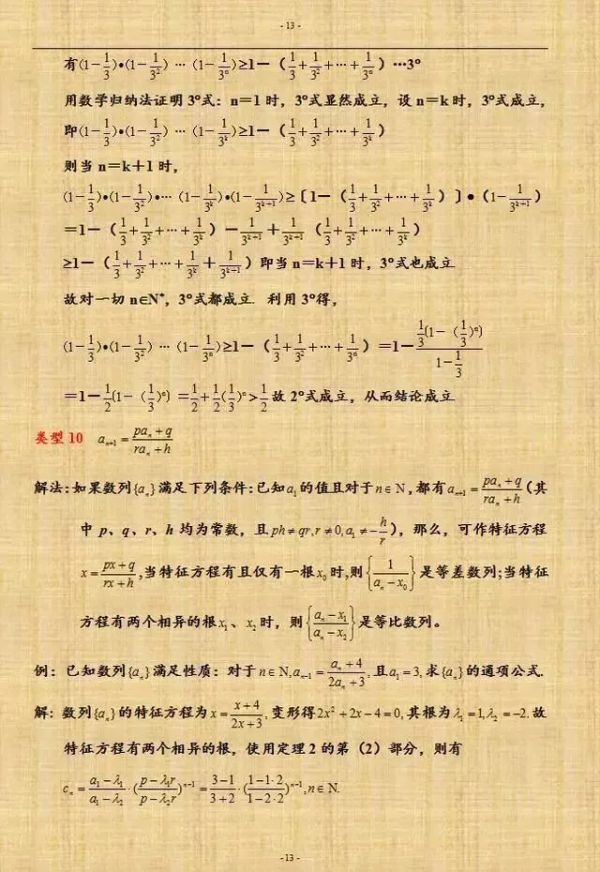 - 13 -
有(1-1/3)•(1-1/3²) … (1-1/3ⁿ)≥1-（1/3+1/3²+…+1/3ⁿ）…3°
用数学归纳法证明 3°式：n＝1 时，3°式显然成立，设 n＝k 时，3°式成立，
即(1-1/3)•(1-1/3²) … (1-1/3ᵏ)≥1-（1/3+1/3²+…+1/3ᵏ）
则当 n＝k＋1 时，
(1-1/3)•(1-1/3²)•… (1-1/3ᵏ)•(1-1/3ᵏ⁺¹)≥〔1-（1/3+1/3²+…+1/3ᵏ）〕•（1-1/3ᵏ⁺¹）
＝1-（1/3+1/3²+…+1/3ᵏ）-1/3ᵏ⁺¹+1/3ᵏ⁺¹（1/3+1/3²+…+1/3ᵏ）
≥1-（1/3+1/3²+…+1/3ᵏ+1/3ᵏ⁺¹）即当 n＝k＋1 时，3°式也成立
故对一切 n∈N*，3°式都成立 利用 3°得，
(1-1/3)•(1-1/3²) … (1-1/3ⁿ)≥1-（1/3+1/3²+…+1/3ⁿ）＝1-(1/3(1-（1/3)ⁿ))/(1-1/3)
＝1-1/2(1-（1/3)ⁿ)＝1/2+1/2(1/3)ⁿ＞1/2 故 2°式成立，从而结论成立
类型 10 aₙ₊₁=(paₙ+q)/(raₙ+h)
解法：如果数列{aₙ}满足下列条件：已知a₁的值且对于n∈N，都有aₙ₊₁=(paₙ+q)/(raₙ+h)（其
中 p、q、r、h 均为常数，且ph≠qr,r≠0,a₁≠-h/r），那么，可作特征方程
x=(px+q)/(rx+h),当特征方程有且仅有一根x₀时,则{1/(aₙ-x₀)}是等差数列;当特征
方程有两个相异的根x₁、x₂时，则{(aₙ-x₁)/(aₙ-x₂)}是等比数列。
例：已知数列{aₙ}满足性质：对于n∈N,aₙ₋₁=(aₙ+4)/(2aₙ+3),且a₁=3,求{aₙ}的通项公式.
解：数列{aₙ}的特征方程为x=(x+4)/(2x+3),变形得2x²+2x-4=0,其根为λ₁=1,λ₂=-2.故
特征方程有两个相异的根，使用定理 2 的第（2）部分，则有
cₙ=(a₁-λ₁)/(a₁-λ₂)·((p-λ₁r)/(p-λ₂r))ⁿ⁻¹=(3-1)/(3+2)·((1-1·2)/(1-2·2))ⁿ⁻¹,n∈N.
- 13 -